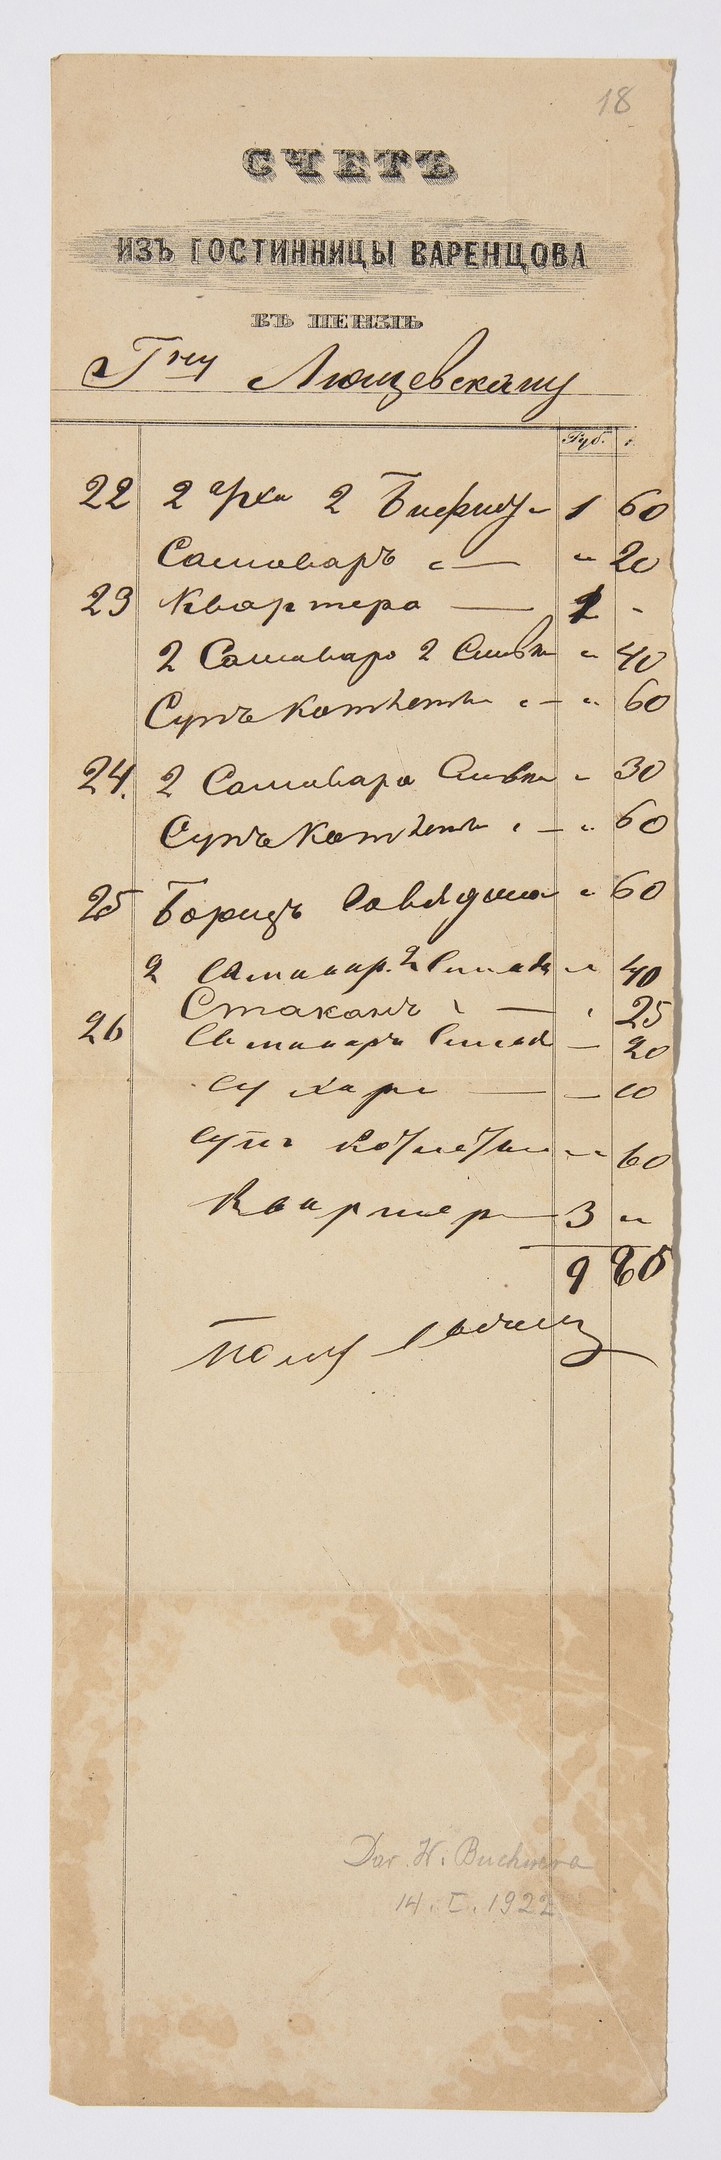 18
СЧЕТЪ
ИЗЪ ГОСТИННИЦЫ ВАРЕНЦОВА
ВЪ ПЕНЗѢ
Гну Лющевскому
Руб. к.
22 2 2 Бифшт „ 1 60
Самоваръ „ — „ 20
23 Квартера — 2 -
2 Самовара 2 Сливк „ 40
Супъ Котлеты „ — „ 60
24. 2 Самовара Сливк „ 30
Супъ Котлеты „ — „ 60
25 Борщъ Говядина „ 60
2 Самовар. 2 Сливк „ 40
Стаканъ „ — „ 25
26 Самоваръ Сливк — 20
Сухари — — 10
Супъ Котлеты „ 60
Квартер — 3 „
9 85
Dar. W. Buchnera
14. I. 1922